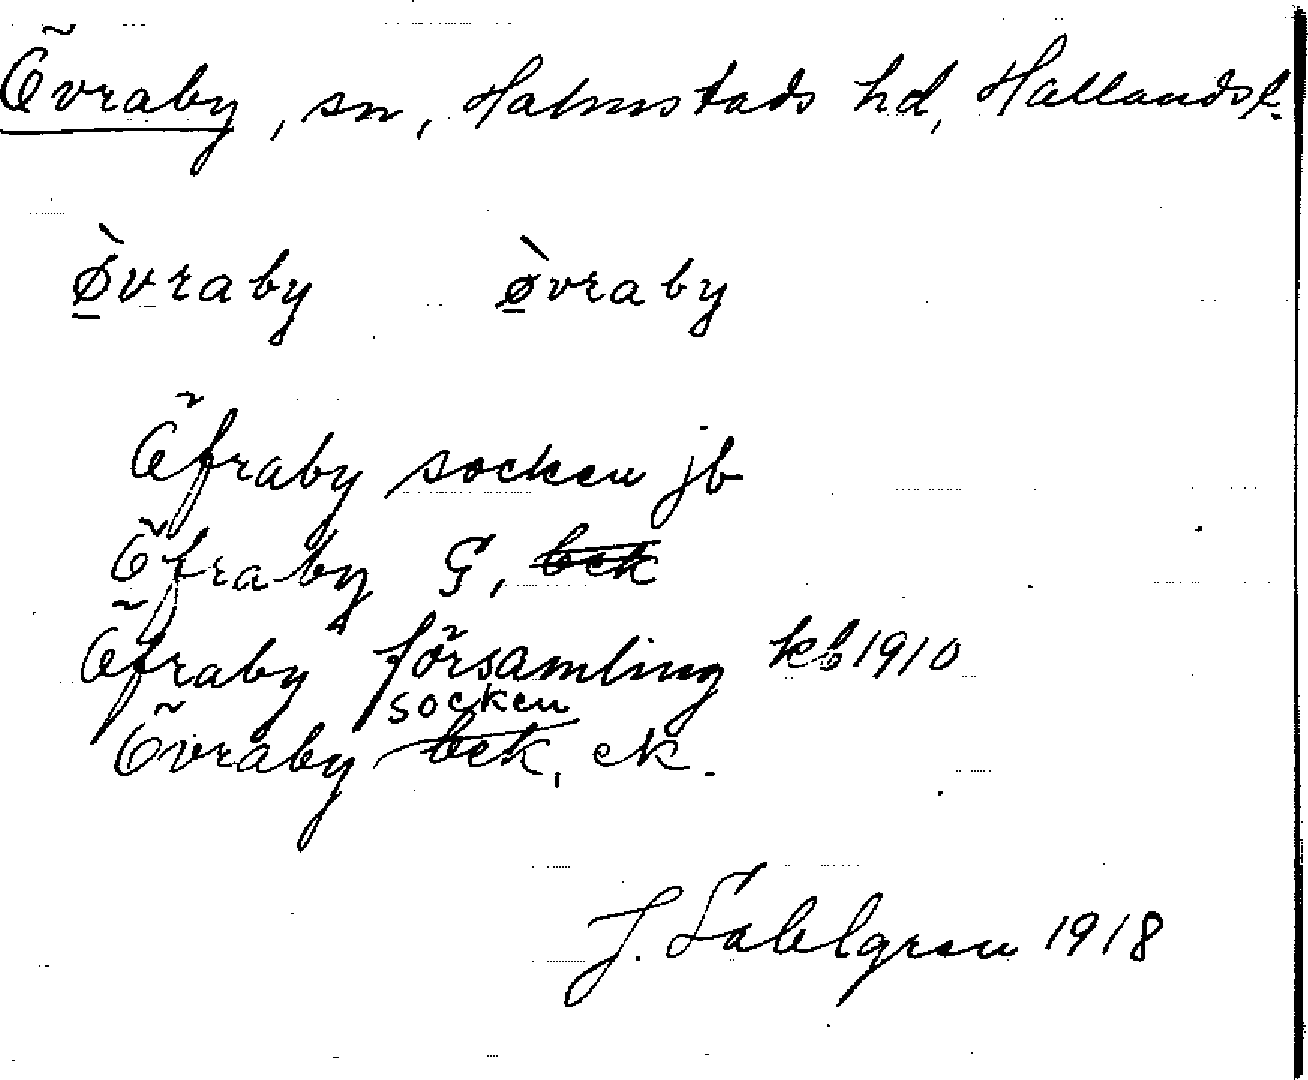 Övraby, sn, Halmstads hd, Hallands l.
ø̱̀vraby ø̱̀vraby
Öfraby socken jb
Öfraby G, bek
Öfraby församling kb 1910
socken
Övraby bek, ek.
J. Sahlgren 1918